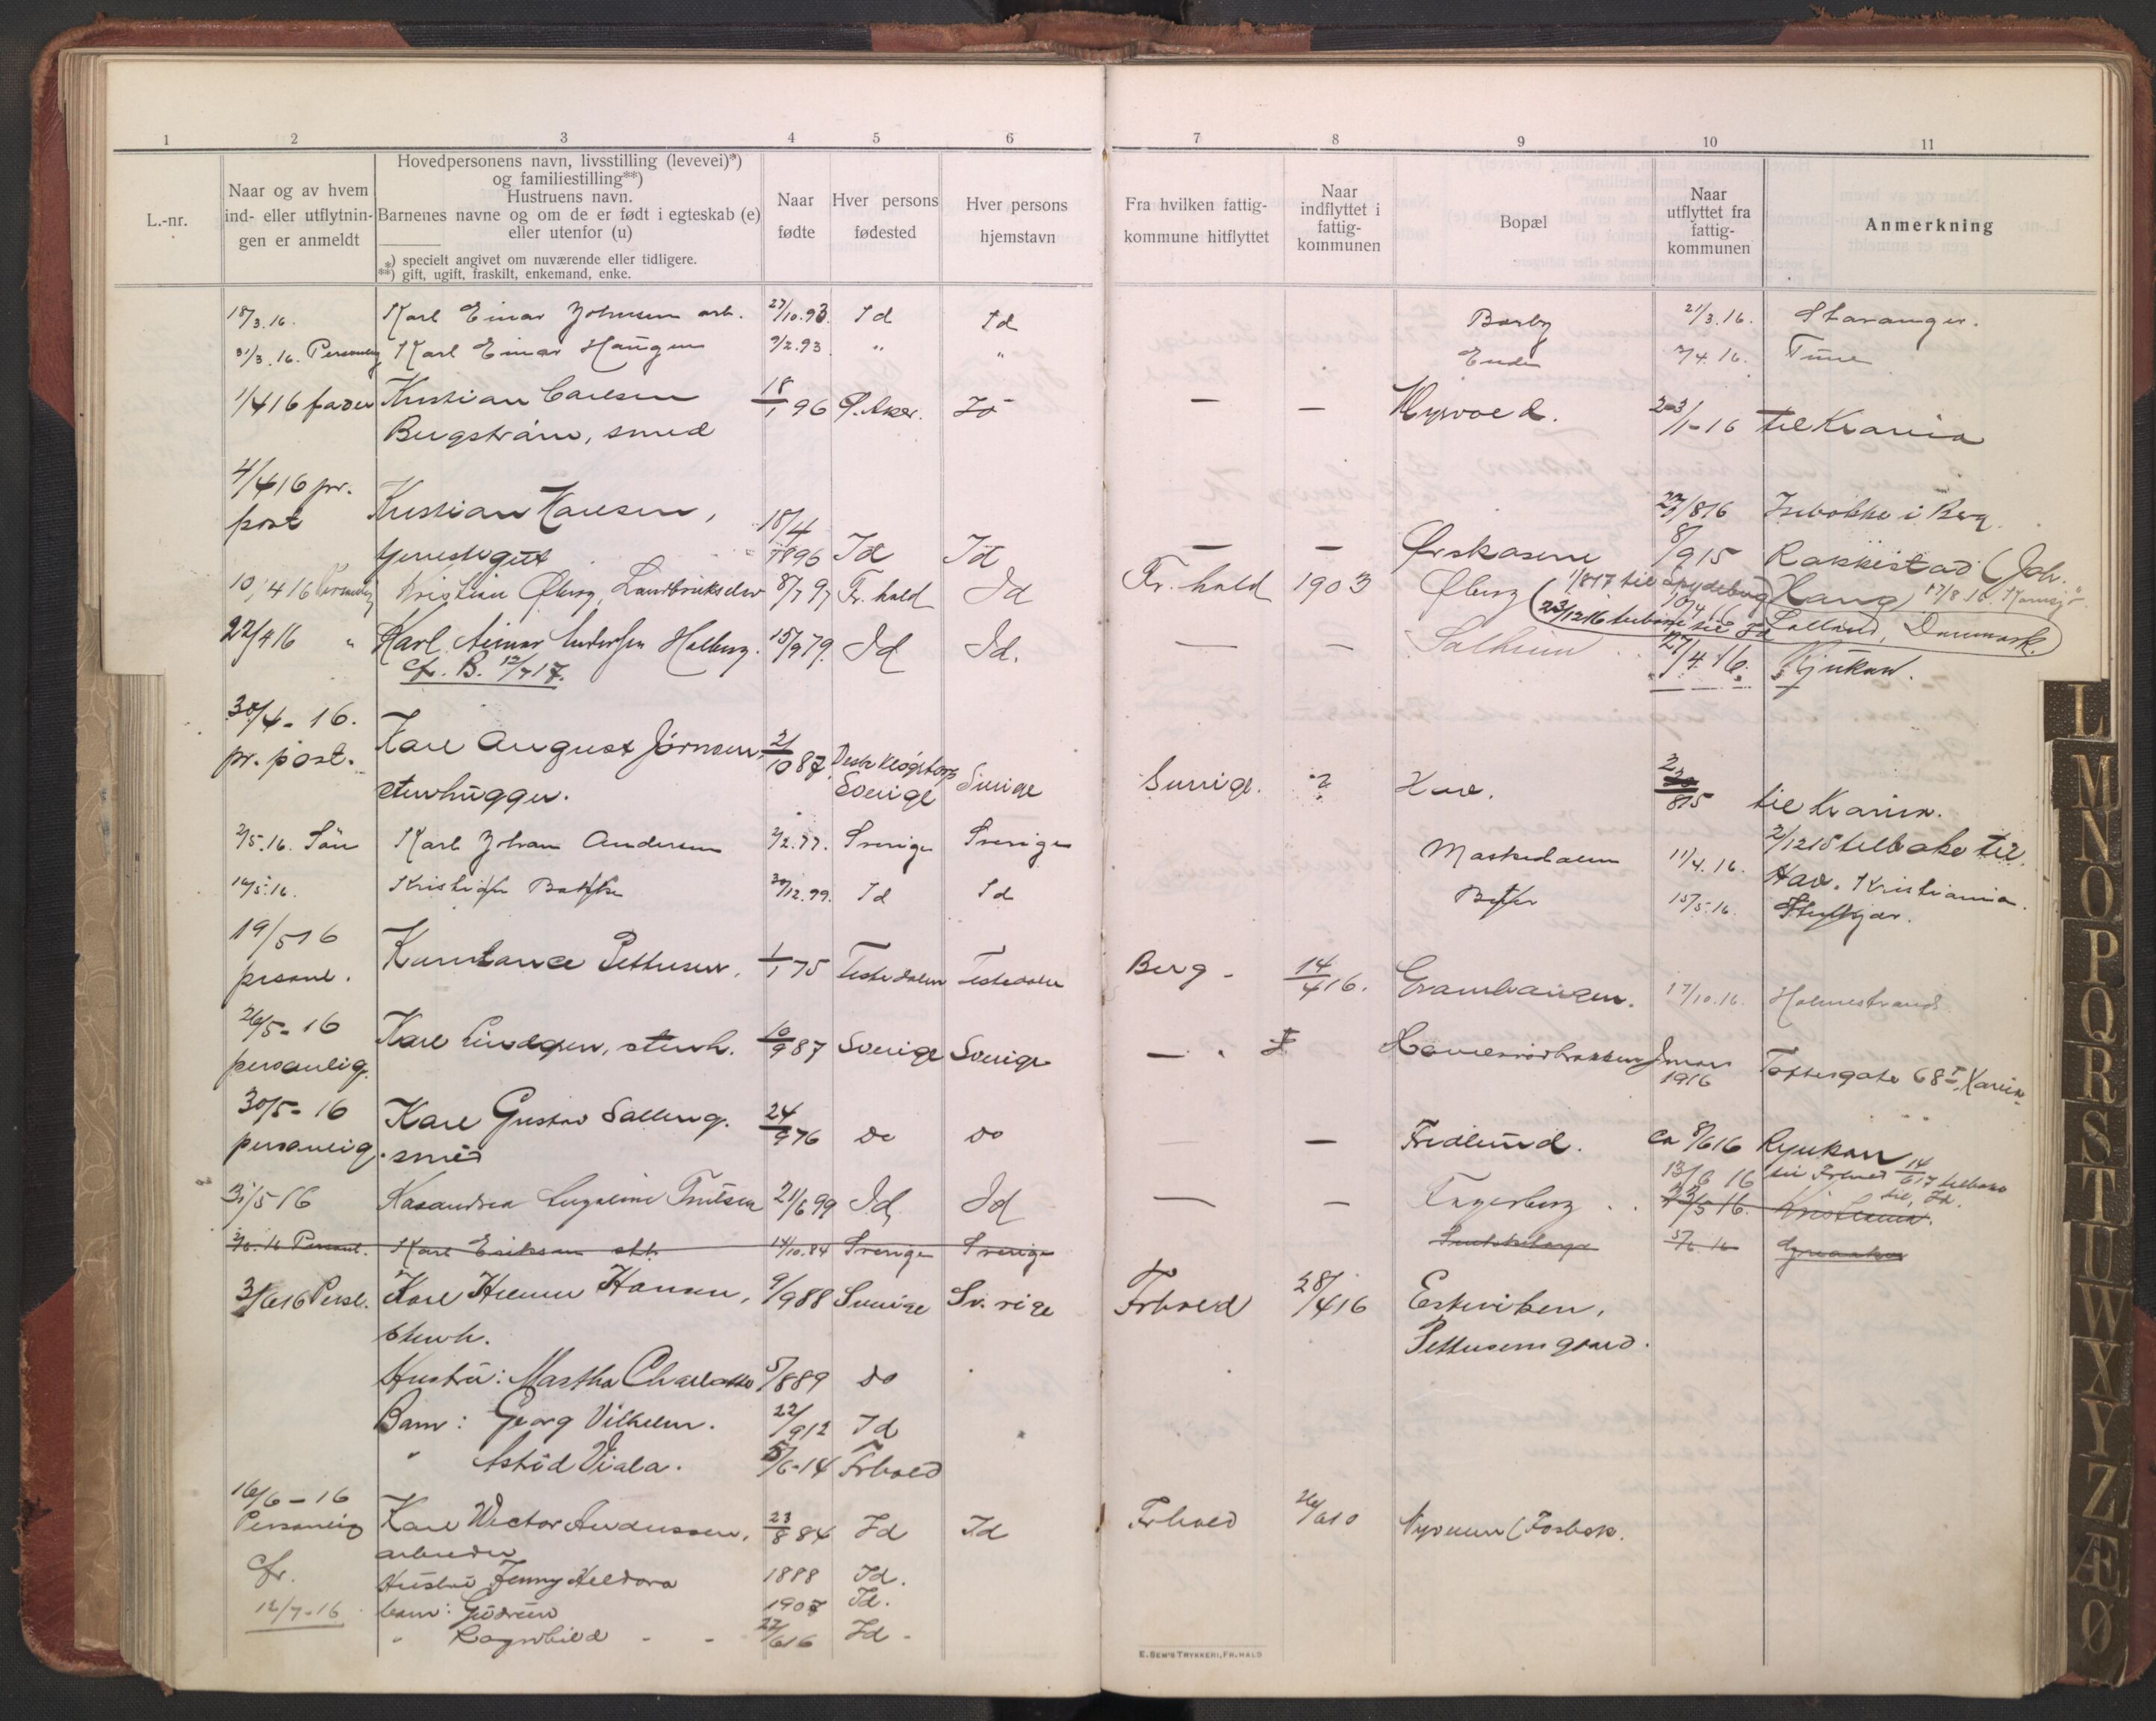 1 2 3 4 5 6 7 8 9 10 11
L.-nr.
Naar og av hvem
ind- eller utflytnin-
gen er anmeldt
Hovedpersonens navn, livsstilling (levevei)*)
og familiestilling**)
Hustruens navn.
Barnenes navne og om de er født i egteskab (e)
eller utenfor (u)
*) specielt angivet om nuværende eller tidligere.
**) gift, ugift, fraskilt, enkemand, enke.
Naar
fødte
Hver persons
fødested
Hver persons
hjemstavn
Fra hvilken fattig-
kommune hitflyttet
Naar
indflyttet i
fattig-
kommunen
Bopæl
Naar
utflyttet fra
fattig-
kommunen
Anmerkning
18/3.16. Karl Einar Johnsen arb. 27/10.93. Id Id Borby 21/3.16. Stavanger.
31/3.16. Karl Einar Haugen 9/2.93 " " Enden 3/4.16. Tune
1/4 16 fader Kristian Carlsen 18/1 96 Ø. Aker. Id — — 23/1-16 til Krania
Bergstrøm, smed
4/4 16 pr. Kristian Karlsen, 23/8 16 i Berg
post tjenestegut 18/4 1896 Id Id — — Ørskasene 8/9 15 Rakkestad (Joh.
10/4 16 Kristian Øberg, 8/7 97 Fr.hald Id Fr. hald 1903 Øberg 1/8 17 til Spydeberg Haug) 17/8 16
10/4 16 Lolland, Danmark.
23/12 16 tilbake til Id
22/4 16 " Karl Aimar Andersen Holberg. 15/9 79. Id Id. — — Solheim 27/4.16. Rjukan.
cf. B. 12/7 17.
30/4-16. Karl August Jørnsen, 21/10 87
pr. post. stenhugger. Sverige Sverige Sverige. ? Hov. 8 15 til Krania.
2/12 15 tilbake til
Hov.
2/5.16. Karl Johan Andersen 2/2.77. Sverige Sverige Maskedalen 11/4.16. Kristiania.
16/5.16. 30/12.99. Id Id 15/5.16.
19/5 16 Konstance Pettersen, 1/1 75 Berg - 14/4 16. 17/10.16. Holmestrand
personl.
26/5-16 Karl Lindgren, stenh. 10/9 87 Sverige Sverige — mars
personlig. 1916 Toftesgate 68
30/5-16 Karl Gustav Salling. 24/9 76 do do — — Fredlund. ca 8/6 16 Rjukan
personlig. smed
31/5 16 Kasandra 21/6 99 Id Id — — Fagerberg 13/6 16 14/6 17 tilbake
til Id.
23/5 16. Kristiania.
2/6.16 Personl. Karl Eriksen sth. 14/10.84 Sverige Sverige 5/6.16
3/6 16 Persl. Karl Hansen, 9/9 88 Sverige Sverige Frhald 28/4 16 Eskeviken,
stenh. Pettersensgaard.
Hustru: Martha Charlotte 5/8 89 do
Barn: Georg Vilhelm. 22/9 12 Id
" Astrid Viola. 5/6-14 Frhald
16/6-16
Personlig Karl Wictor Andersen, 23/8 84 Id Id Frhald 26/6 10
arbeider
cfr. Hustru Jenny Heldora 1888 Id.
12/7-16 barn: Gudrun 1907 Id.
" Ragnhild - - 22/6 16 Id -
E. SEM'S TRYKKERI, FR.HALD
L
M
N
O
P
Q
R
S
T
U
W
X
Y
Z
Æ
Ø